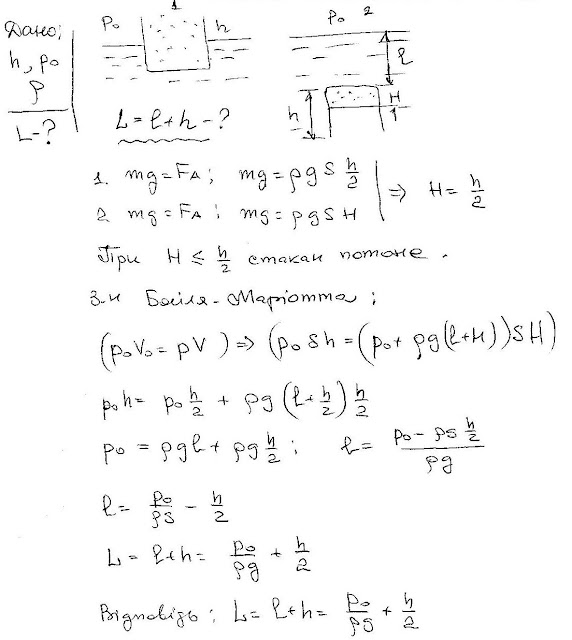 Дано:
h, p₀
ρ
L-?
p₀ 1 h
L = ℓ+h - ?
p₀ 2
ℓ
h H
1
1. mg = F_A ; mg = ρg S h/2 | ⇒ H = h/2
2. mg = F_A ; mg = ρg S H
При H ≤ h/2 стакан потоне .
З-н Бойля-Маріотта ;
(p₀V₀ = pV) ⇒ (p₀ Sh = (p₀ + ρg(ℓ+H)) SH)
p₀h = p₀ h/2 + ρg (ℓ+ h/2) h/2
p₀ = ρgℓ + ρg h/2 ; ℓ = (p₀ - ρg h/2)/ρg
ℓ = p₀/ρg - h/2
L = ℓ+h = p₀/ρg + h/2
Відповідь : L = ℓ+h = p₀/ρg + h/2